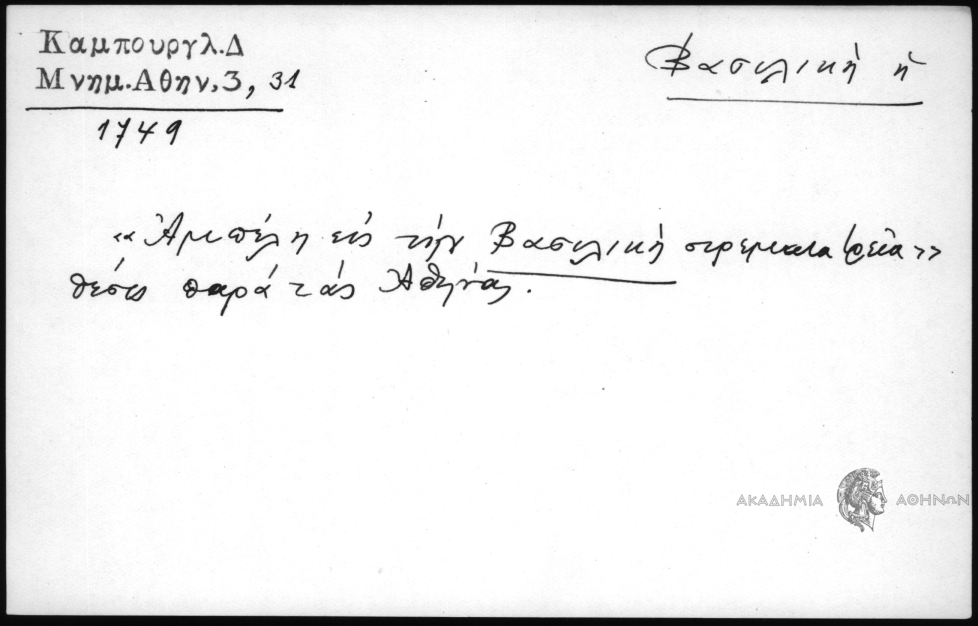 Καμπουργλ.Δ
Μνημ.Αθην.3, 31
1749
Βασιλική ἡ
«Ἀμπέλη εἰς τὴν Βασιλικὴ στρέμματα τρεῖα»
θέσις παρά τὰς Ἀθήνας.
ΑΚΑΔΗΜΙΑ ΑΘΗΝΩΝ